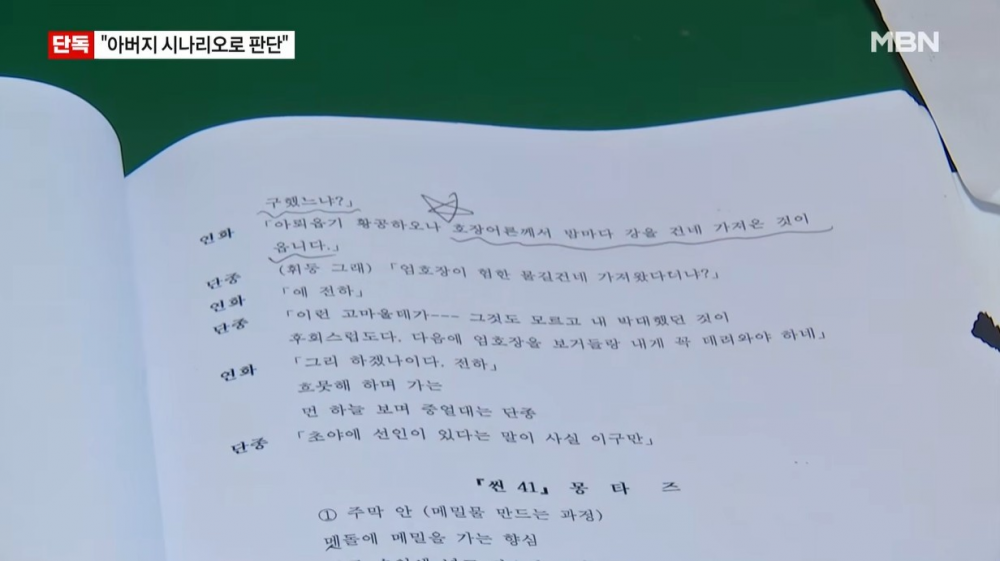 단독 "아버지 시나리오로 판단"
MBN
구했느냐?」
인화 「아뢰옵기 황공하오나 호장어른께서 밤마다 강을 건네 가저온 것이
옵니다.」
단종 (휘둥 그래) 「엄호장이 험한 물길건네 가져왔다더냐?」
인화 「예 전하」
단종 「이런 고마울데가--- 그것도 모르고 내 박대했던 것이
후회스럽도다. 다음에 엄호장을 보거들랑 내게 꼭 데려와야 하네」
인화 「그리 하겠나이다. 전하」
흐믓해 하며 가는
먼 하늘 보며 중얼대는 단종
단종 「초야에 선인이 있다는 말이 사실 이구만」
『씬 41』 몽 타 즈
① 주막 안 (메밀물 만드는 과정)
맷돌에 메밀을 가는 향심